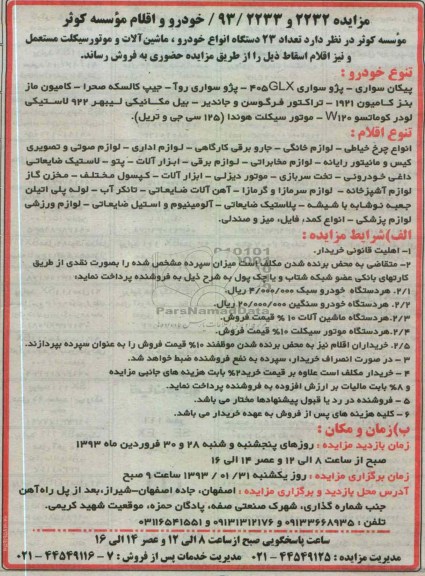 مزایده ۲۲۳۲ و ۲۲۳۳ /۹۳ / خودرو و اقلام مؤسسه کوثر
مؤسسه کوثر در نظر دارد تعداد ۲۳ دستگاه انواع خودرو ، ماشین آلات و موتورسیکلت مستعمل
و نیز اقلام اسقاط ذیل را از طریق مزایده حضوری به فروش رساند.
تنوع خودرو :
پیکان سواری - پژو سواری ۴۰۵GLX - پژو سواری روآ- جیپ کالسکه صحرا - کامیون ماز
بنز کامیون ۱۹۲۱ - تراکتور فرگوسن و جاندیر - بیل مکانیکی لیبهر ۹۲۲ لاستیکی
لودر کوماتسو W۱۲۰ - موتور سیکلت هوندا (۱۲۵ سی جی و تریل).
تنوع اقلام :
انواع چرخ خیاطی - لوازم خانگی - جارو برقی کارگاهی - لـوازم اداری - لوازم صوتی و تصویری
کیس و مانیتور رایانه - لوازم مخابراتی - لوازم برقی - ابزار آلات - پتو - لاستیک ضایعاتی
داغی خـودرونی - تخت سربازی - موتور دیزلی - ابزار آلات - کپسول مختلف - مخزن گاز
لوازم آشپزخانه - لوازم سرمازا و گرمازا - آهن آلات ضایعاتی - تانکر آب - لوله پلی اتیلن
جعبه نوشابه با شیشه - پلاستیک ضایعاتی - آلومینیوم و استیل ضایعاتی - لوازم ورزشی
لوازم پزشکی - انواع کمد، فایل، میز و صندلی.
الف)شرایط مزایده :
۱- اهلیت قانونی خریدار.
۲- متقاضی به محض برنده شدن مکلف است میزان سپرده مشخص شده را بصورت نقدی از طریق
کارتهای بانکی عضو شبکه شتاب و یا چک پول به شرح ذیل به فروشنده پرداخت نماید:
۲/۱. هردستگاه خودرو سبک ۴/۰۰۰/۰۰۰ ریال.
۲/۲. هردستگاه خودرو سنگین ۲۰/۰۰۰/۰۰۰ ریال.
۲/۳. هردستگاه ماشین آلات ۱۰ % قیمت فروش.
۲/۴. هردستگاه موتور سیکلت ۱۰% قیمت فروش.
۲/۵. خریداران اقلام نیز به محض برنده شدن موظفند ۱۰% قیمت فروش را به عنوان سپرده بپردازند.
۳ - در صورت انصراف خریدار، سپرده به نفع فروشنده ضبط خواهد شد.
۴ - خریدار مکلف است علاوه بر قیمت خرید ۲% بابت هزینه های جانبی مزایده
و ۸% بابت مالیات بر ارزش افزوده به فروشنده پرداخت نماید.
۵ - فروشنده در رد یا قبول پیشنهادها مختار می باشد.
۶ - کلیه هزینه های پس از فروش به عهده خریدار می باشد.
ب)زمان و مکان :
زمان بازدید مزایده : روزهای پنجشنبه و شنبه ۲۸ و ۳۰ فروردین ماه ۱۳۹۳
صبح از ساعت ۸ الی ۱۲ و عصر ۱۴ الی ۱۶
زمان برگزاری مزایده : روز یکشنبه ۳۱/ ۰۱ / ۱۳۹۳ ساعت ۹ صبح
آدرس محل بازدید و برگزاری مزایده : اصفهان، جاده اصفهان-شیراز،بعد از پل راه‌آهن
جنب شماره گذاری، شهرک صنعتی صفه، پادگان حمزه، موقعیت شهید کریمی.
تلفن : ۰۹۱۳۳۶۶۸۹۳۵ و ۰۹۱۳۱۳۱۲۱۷۶ و ۰۳۱۱۶۵۴۱۵۵۱
ساعت پاسخگویی صبح ازساعت ۸ الی ۱۲ و عصر ۱۴ الی ۱۶
مدیریت مزایده : ۴۴۵۴۹۱۲۵ - ۰۲۱ مدیریت خدمات پس از فروش : ۷ - ۴۴۵۴۹۱۱۶ - ۰۲۱
ParsNamadData